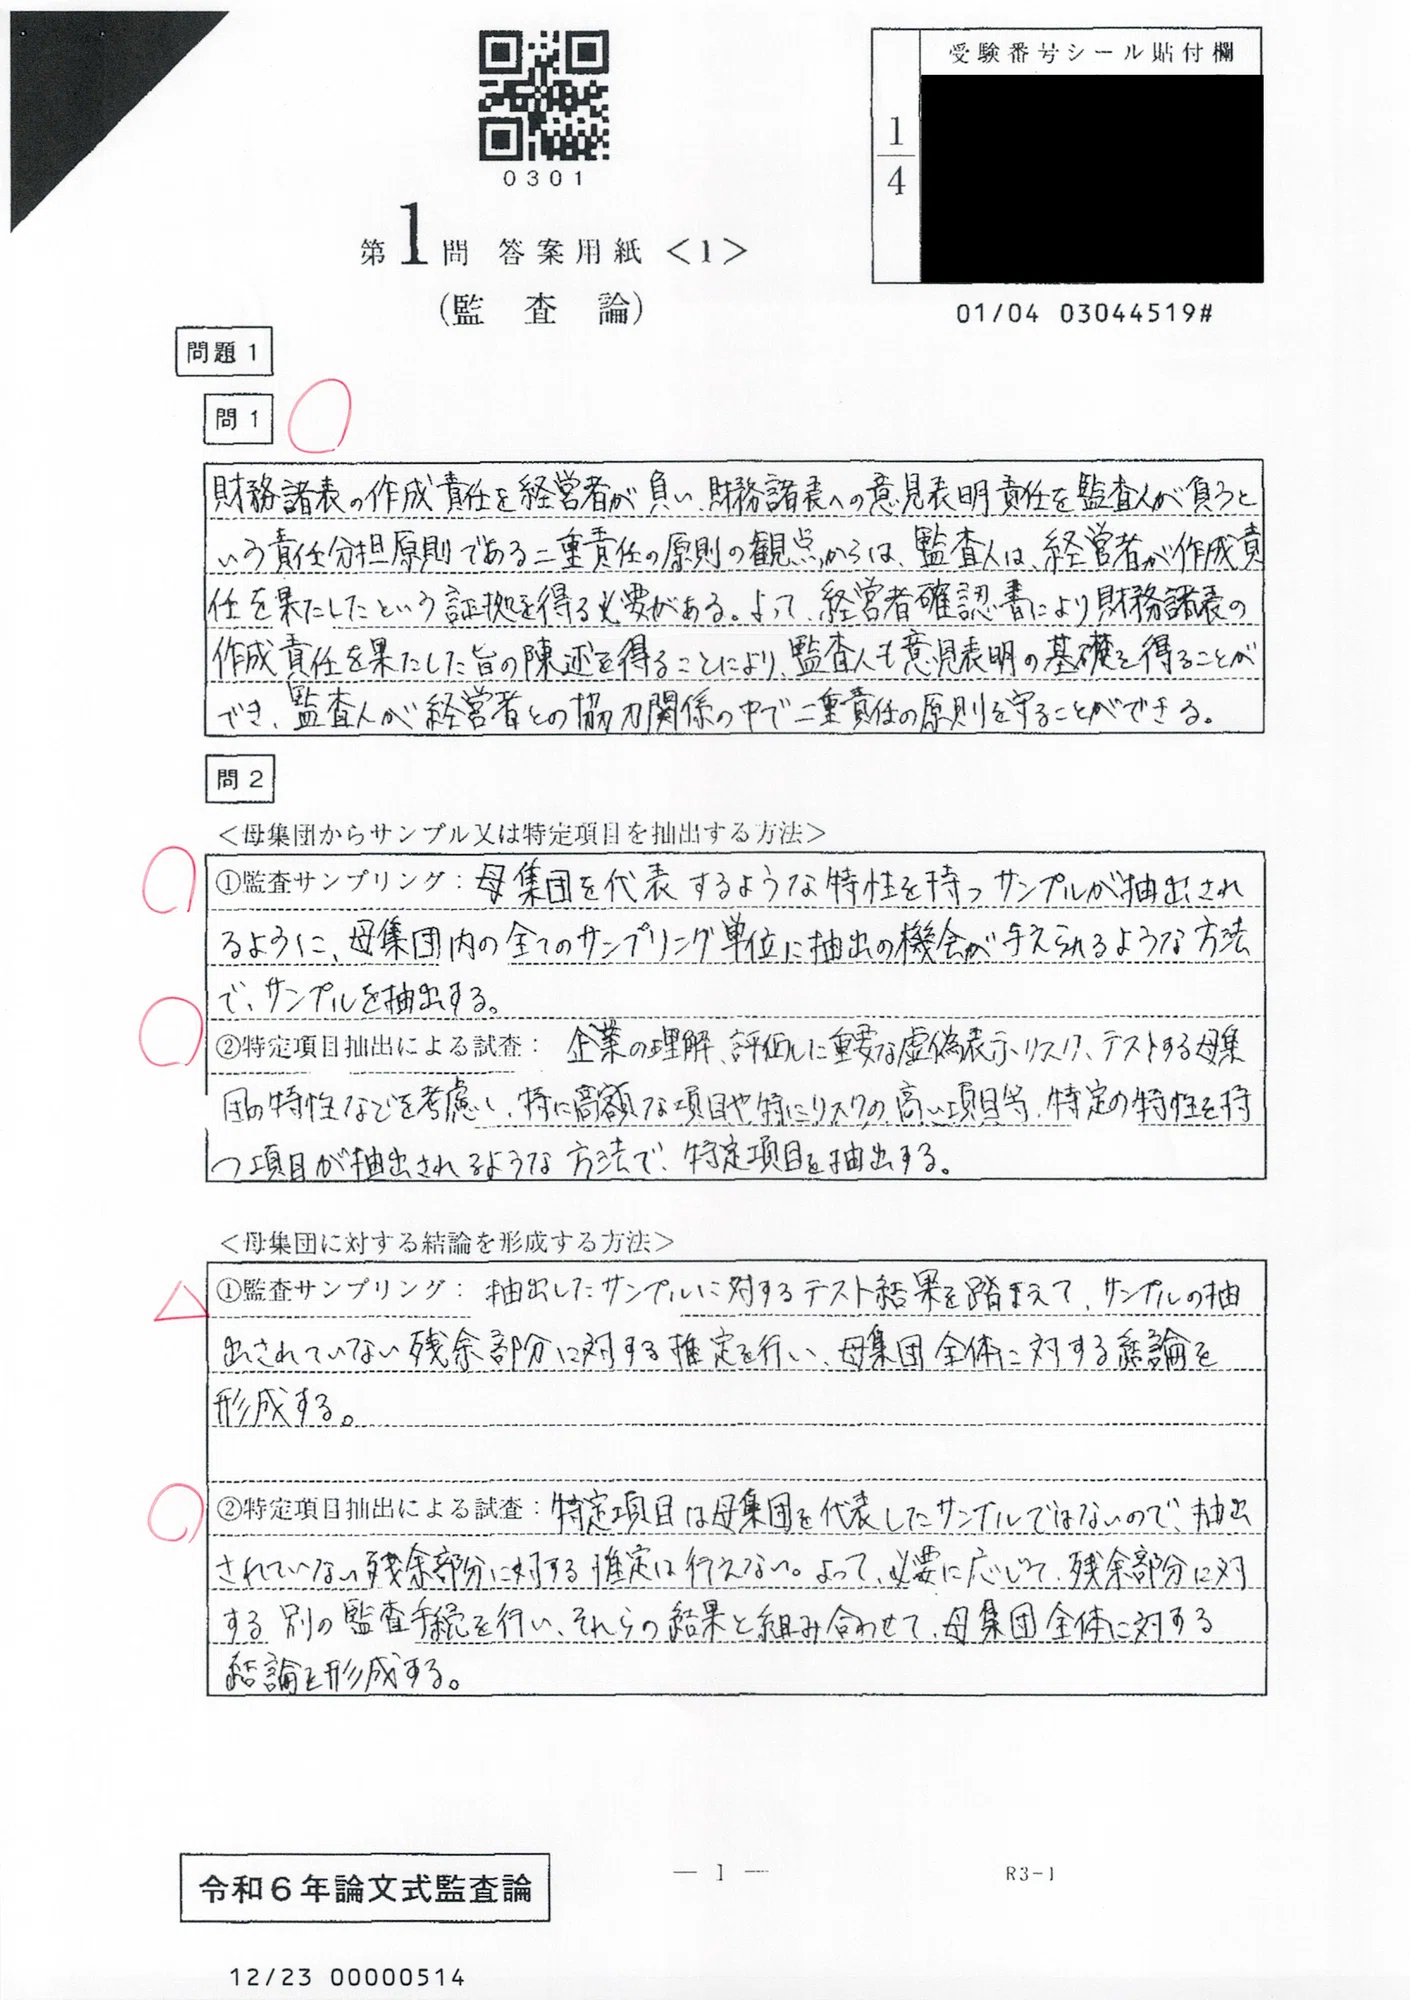 受験番号シール貼付欄
1
4
0301
第1問 答案用紙＜1＞
(監査論)
01/04 03044519#
問題1
問1
財務諸表の作成責任を経営者が負い、財務諸表への意見表明責任を監査人が負うと
いう責任分担原則である二重責任の原則の観点からは、監査人は、経営者が作成責
任を果たしたという証拠を得る必要がある。よって、経営者確認書により財務諸表の
作成責任を果たした旨の陳述を得ることにより、監査人も意見表明の基礎を得ることが
でき、監査人が経営者との協力関係の中で二重責任の原則を守ることができる。
問2
＜母集団からサンプル又は特定項目を抽出する方法＞
①監査サンプリング：母集団を代表するような特性を持つサンプルが抽出され
るように、母集団内の全てのサンプリング単位に抽出の機会が与えられるような方法
で、サンプルを抽出する。
②特定項目抽出による試査：企業の理解、評価した重要な虚偽表示リスク、テストする母集
団の特性などを考慮し、特に高額な項目や特にリスクの高い項目等、特定の特性を持
つ項目が抽出されるような方法で、特定項目を抽出する。
＜母集団に対する結論を形成する方法＞
①監査サンプリング：抽出したサンプルに対するテスト結果を踏まえて、サンプルの抽
出されていない残余部分に対する推定を行い、母集団全体に対する結論を
形成する。
②特定項目抽出による試査：特定項目は母集団を代表したサンプルではないので、抽出
されていない残余部分に対する推定は行えない。よって、必要に応じて、残余部分に対
する別の監査手続を行い、それらの結果と組み合わせて、母集団全体に対する
結論を形成する。
— 1 —
R3-1
令和6年論文式監査論
12/23 00000514